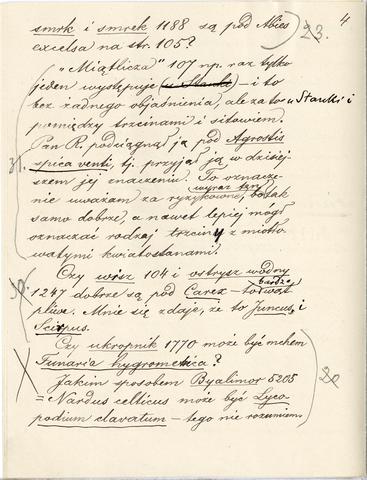 4
smrk i smrek 1188 są pod Abies 23.
excelsa na str. 105?
„Miątlicza" 107 np. raz tylko
jeden występuje (u Stanki) – i to
bez żadnego objaśnienia, ale za to u Stanki i
pomiędzy trzcinami i sitowiem.
Pan R. podciągnął ją pod Agrostis
31. spica venti, tj. przyjął ją w dzisiej-
szem jej znaczeniu. To oznacze-
nie uważam za ryzykowne, wyraz trzy bo tak
samo dobrze, a nawet lepiej mógł
oznaczać rodzaj trzciny z miotło
watymi kwiatostanami.
Czy wrisz 104 i ostrysz wodny
30. 1247 dobrze są pod Carex – to bardzo wąt
pliwe. Mnie się zdaje, że to Juncus, i
Scirpus.
Czy ukropnik 1770 może być mchem
Funaria hygrometrica?
Jakim sposobem Byalimor 5205 20
= Nardus celticus może być Lyco-
podium clavatum – tego nie rozumiem.